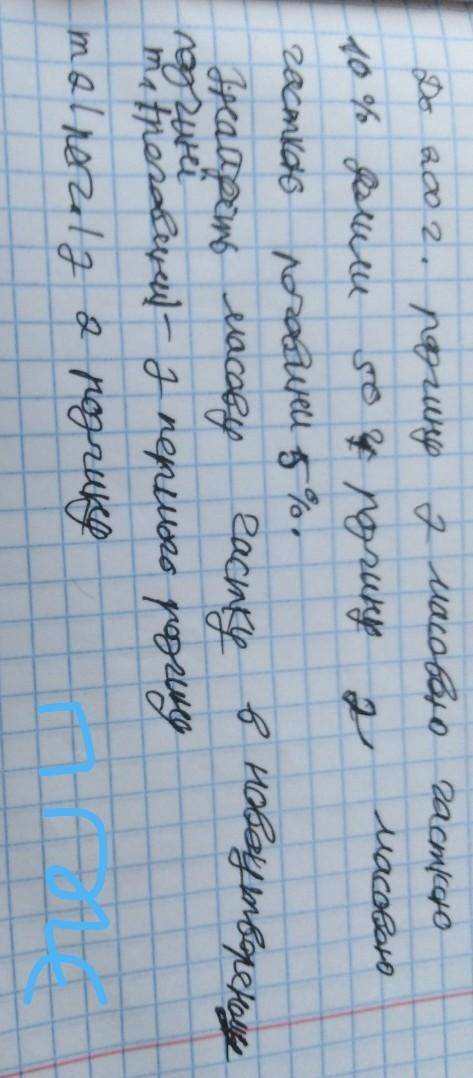 До 200 г. розчину з масовою часткою
10 % долили 50 г розчину з масовою
часткою речовини 5%.
Знайдіть масову частку в новоутвореному
розчині
m₁ (речовини) - з першого розчину
m2 (реч.) з 2 розчину
ПЛЖ